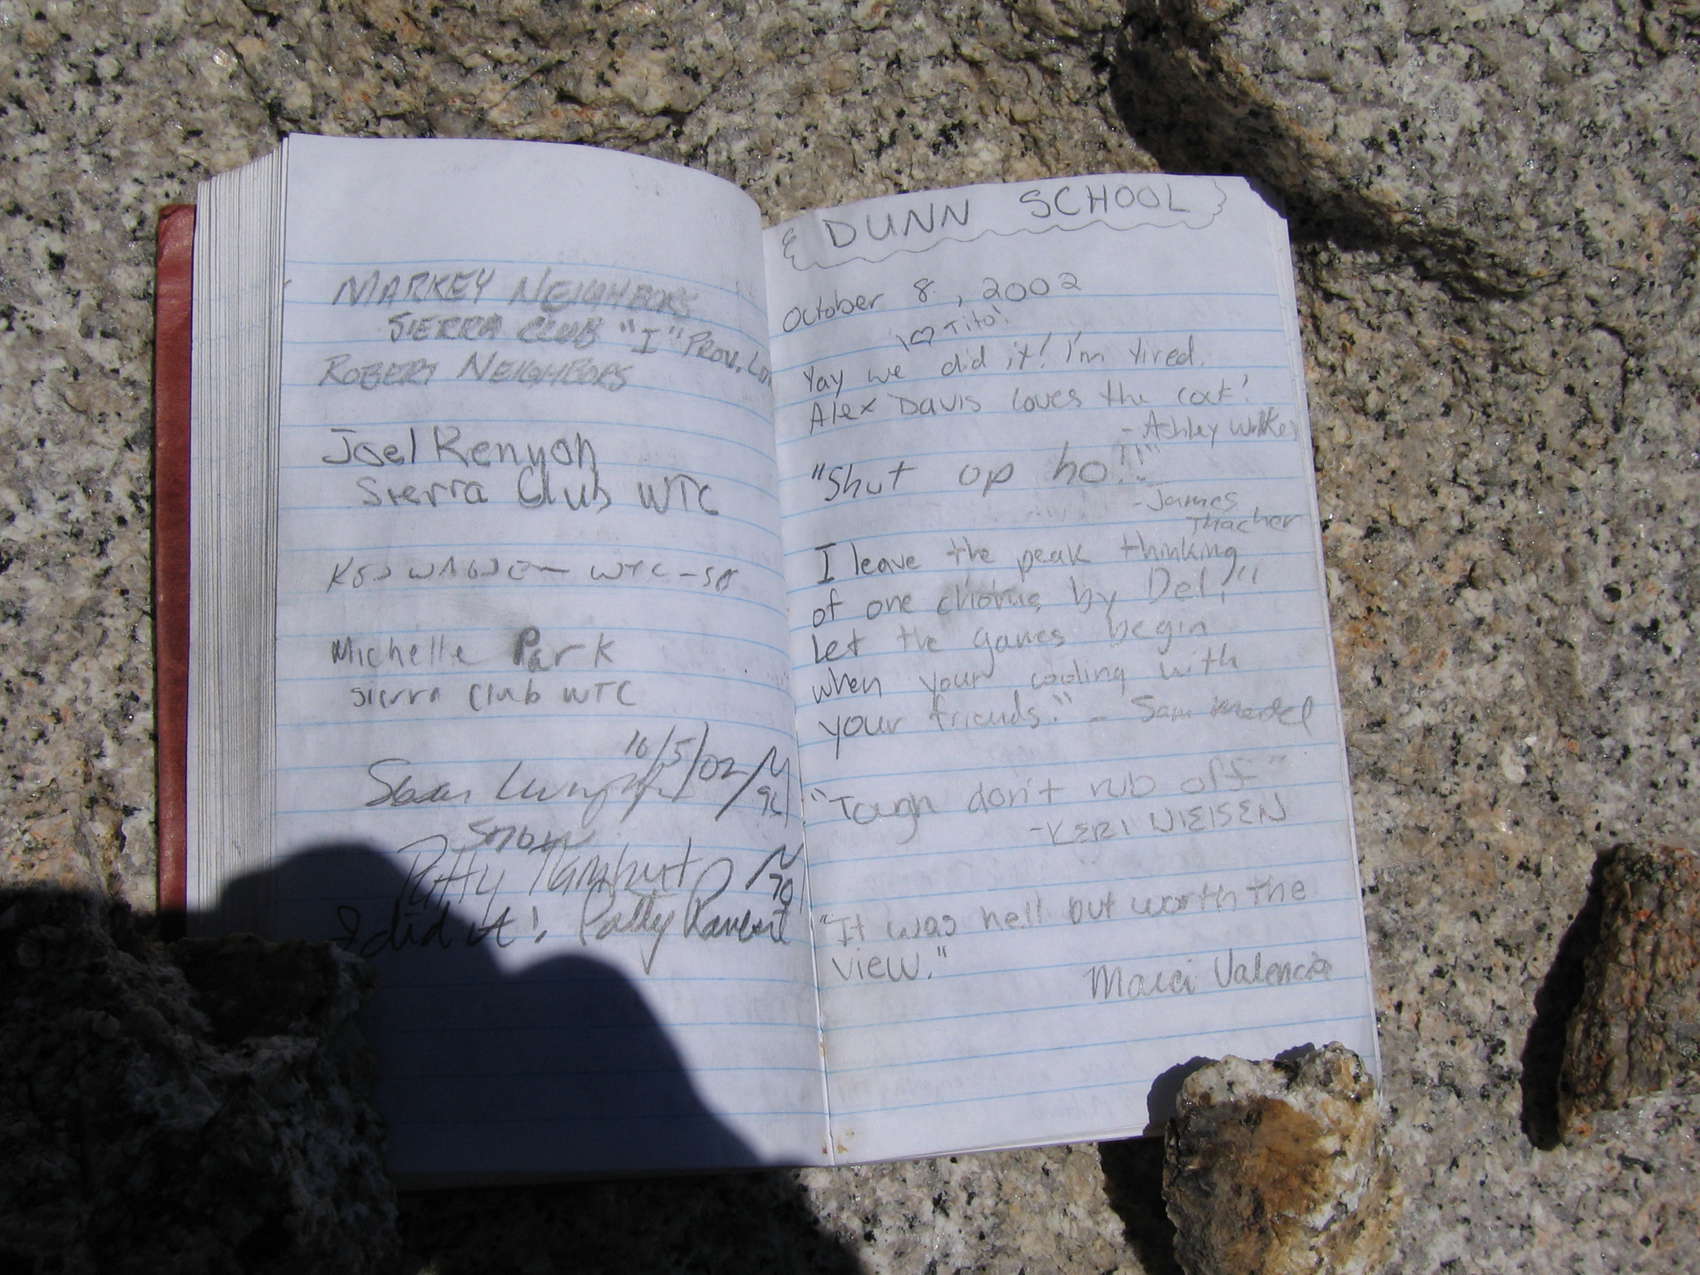 MARKEY NEIGHBORS
SIERRA CLUB "I" Prov.
ROBERT NEIGHBORS
Joel Kenyon
Sierra Club WTC
WTC - SB
Michelle Park
Sierra Club WTC
10/5/02
Patty
I did it! Patty
DUNN SCHOOL
October 8, 2002
I ♡ Tito!
Yay we did it! I'm tired.
Alex Davis loves the cat!
- Ashley Walker
"Shut up ho!!"
- James
Thacher
I leave the peak thinking
of one chorus by Del, "
Let the games begin
when your cooling with
your friends." - Sam
"Tough don't rub off"
- KERI NIELSEN
"It was hell but worth the
view."
Marci Valencia